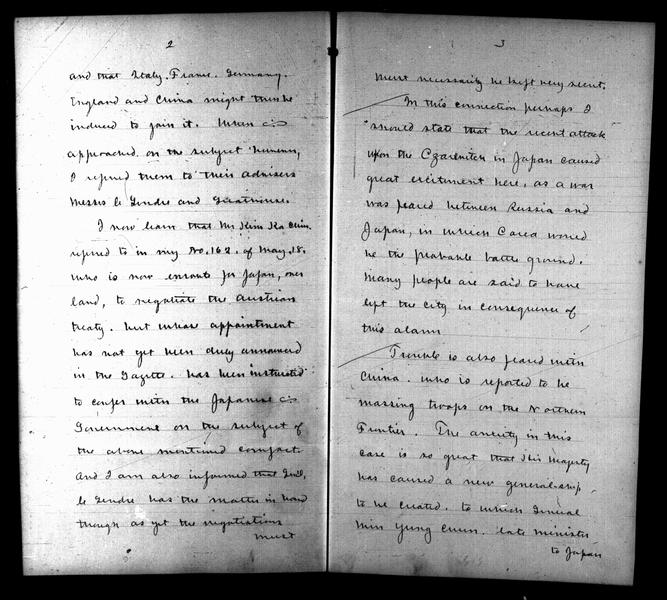 2
and that Italy. France. Germany.
England and China might then be
induced to join it. When
approached on the subject however,
I referred them to their advisers
Messrs le Gendre and Greathouse.
I now learn that Mr Kim Ka Chin.
referred to in my No. 162. of May. 18.
who is now enroute for Japan, over
land, to negotiate the Austrian
treaty. but whose appointment
has not yet been duly announced
in the Gazette. has been instructed
to confer with the Japanese
Government on the subject of
the above mentioned compact.
And I am also informed that Genl.
le Gendre has the matter in hand
though as yet the negotiations
must
3
must necessarily be kept very secret.
In this connection perhaps I
should state that the recent attack
upon the Czarevitch in Japan caused
great excitement here, as a war
was feared between Russia and
Japan, in which Corea would
be the probable battle ground.
Many people are said to have
left the city in consequence of
this alarm
Trouble is also feared with
China. who is reported to be
massing troops on the Northern
Frontier. The anxiety in this
case is so great that His Majesty
has caused a new generalship
to be created. to which General
Min Yung Chun. late minister
to Japan